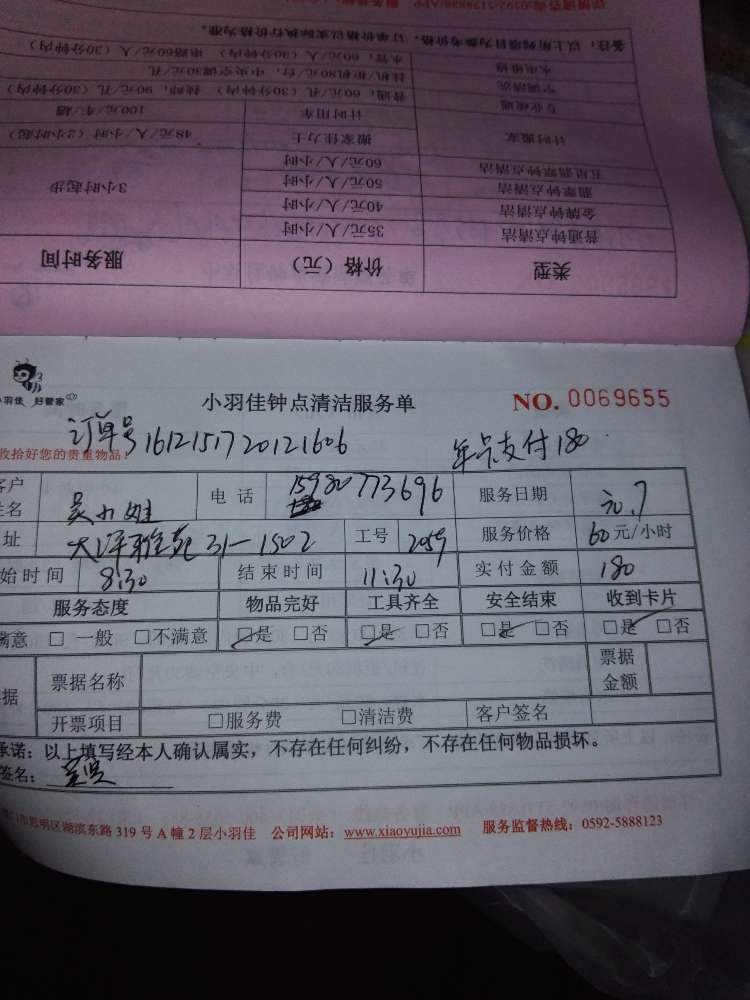 详情请咨询0592-5128888/APP
备注：以上所列项目为参考价格，订单价格以实际执行价格为准。
水电维修 水管，60元/人（30分钟内） 电路60元/人（30分钟内）
空调清洗 挂机/柜机80元/台，中央空调30元/孔
专业疏通 普通，60元/孔（30分钟内） 技师，90元/孔（30分钟内）
计时搬家 计时用车 100元/车/趟
搬家佳力士 48元/人/小时（2小时起）
五星翡翠钟点清洁 60元/人/小时
翡翠钟点清洁 50元/人/小时 3小时起步
金牌钟点清洁 40元/人/小时
普通钟点清洁 35元/人/小时
类型 价格（元） 服务时间
小羽佳 好管家
小羽佳钟点清洁服务单 NO. 0069655
订单号1612151720121606 年卡支付180
收拾好您的贵重物品！
客户姓名 吴小姐 电话 15980773696 服务日期
址 31-1502 工号 2059 服务价格 60元/小时
始时间 8:30 结束时间 11:30 实付金额 180
服务态度 物品完好 工具齐全 安全结束 收到卡片
满意 □一般 □不满意 □是 □否 □是 □否 □是 □否 □是 □否
据 票据名称 票据金额
开票项目 □服务费 □清洁费 客户签名
承诺：以上填写经本人确认属实，不存在任何纠纷，不存在任何物品损坏。
签名：
门市思明区湖滨东路 319 号 A 幢 2 层小羽佳 公司网站：www.xiaoyujia.com 服务监督热线：0592-5888123